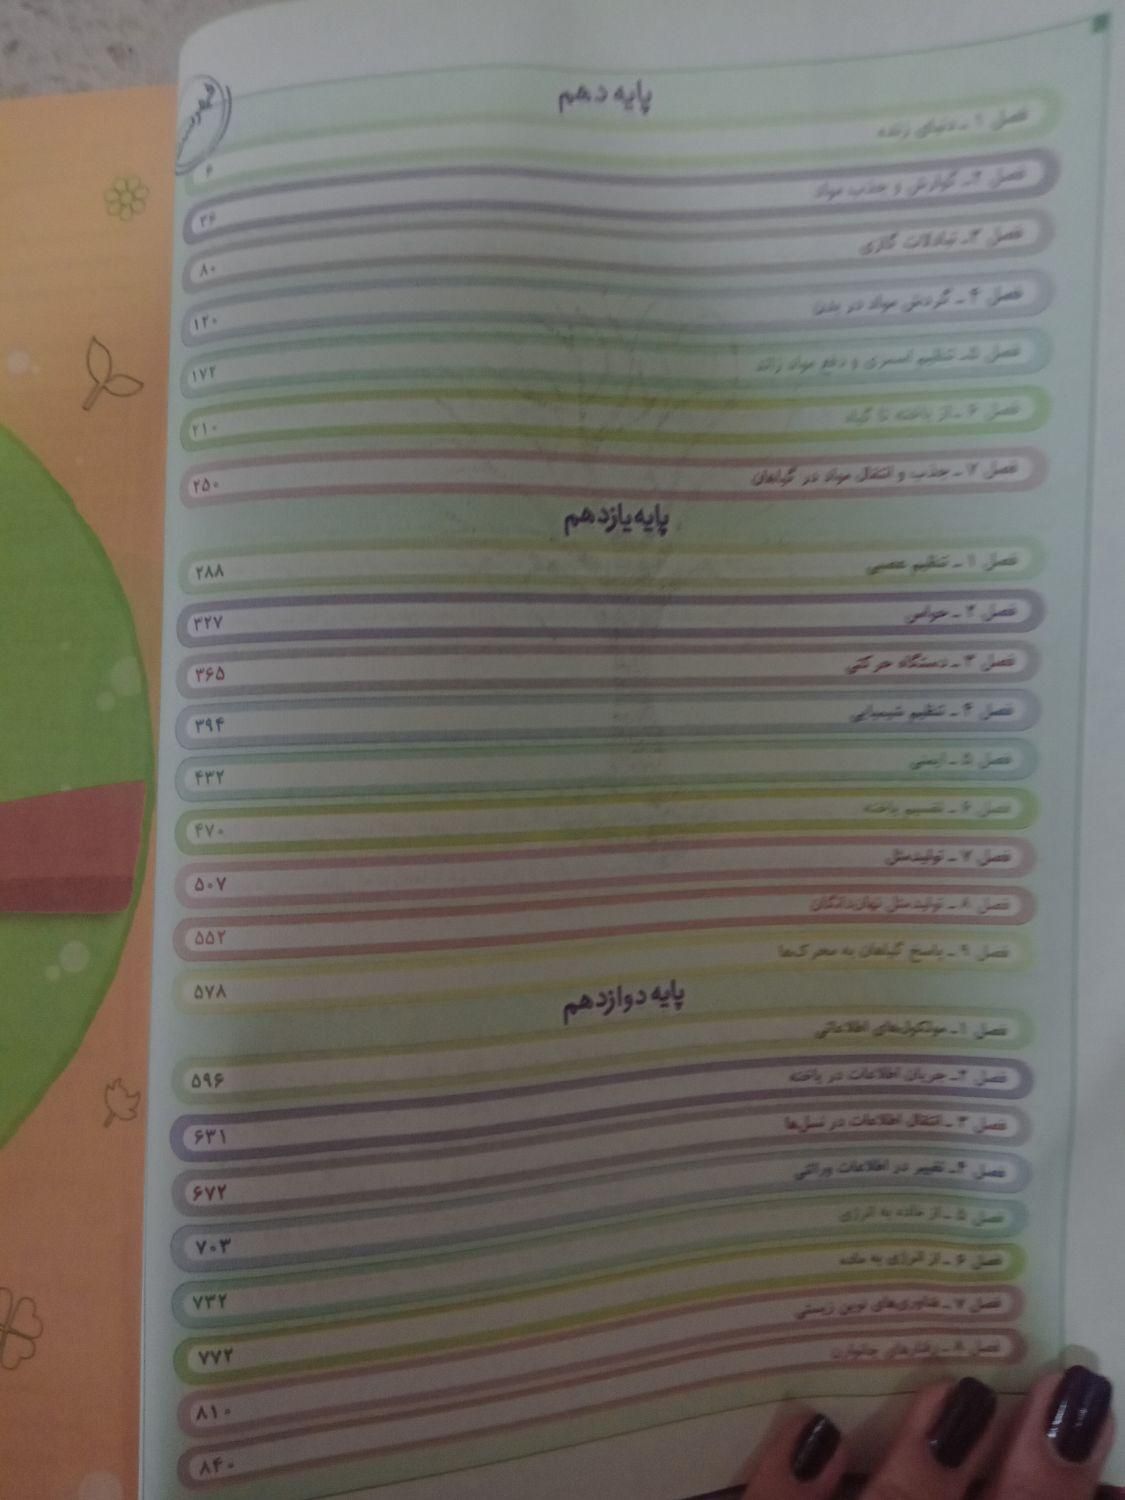 فهرست
پایه دهم
فصل ۱ ـ دنیای زنده ۶
فصل ۲ـ گوارش و جذب مواد ۳۶
فصل ۳ـ تبادلات گازی ۸۰
فصل ۴ ـ گردش مواد در بدن ۱۲۰
فصل ۵ـ تنظیم اسمزی و دفع مواد زائد ۱۷۲
فصل ۶ ـ از یاخته تا گیاه ۲۱۰
فصل ۷ ـ جذب و انتقال مواد در گیاهان ۲۵۰
پایه یازدهم
فصل ۱ ـ تنظیم عصبی ۲۸۸
فصل ۲ ـ حواس ۳۲۷
فصل ۳ ـ دستگاه حرکتی ۳۶۵
فصل ۴ ـ تنظیم شیمیایی ۳۹۴
فصل ۵ ـ ایمنی ۴۳۲
فصل ۶ ـ تقسیم یاخته ۴۷۰
فصل ۷ ـ تولیدمثل ۵۰۷
فصل ۸ ـ تولیدمثل نهان‌دانگان ۵۵۲
فصل ۹ ـ پاسخ گیاهان به محرک‌ها ۵۷۸
پایه دوازدهم
فصل ۱ـ مولکول‌های اطلاعاتی ۵۹۶
فصل ۲ـ جریان اطلاعات در یاخته ۶۳۱
فصل ۳ ـ انتقال اطلاعات در نسل‌ها ۶۷۲
فصل ۴ـ تغییر در اطلاعات وراثتی ۷۰۳
فصل ۵ ـ از ماده به انرژی ۷۳۲
فصل ۶ ـ از انرژی به ماده ۷۷۲
فصل ۷ ـ فناوری‌های نوین زیستی ۸۱۰
فصل ۸ ـ رفتارهای جانوارن ۸۴۰